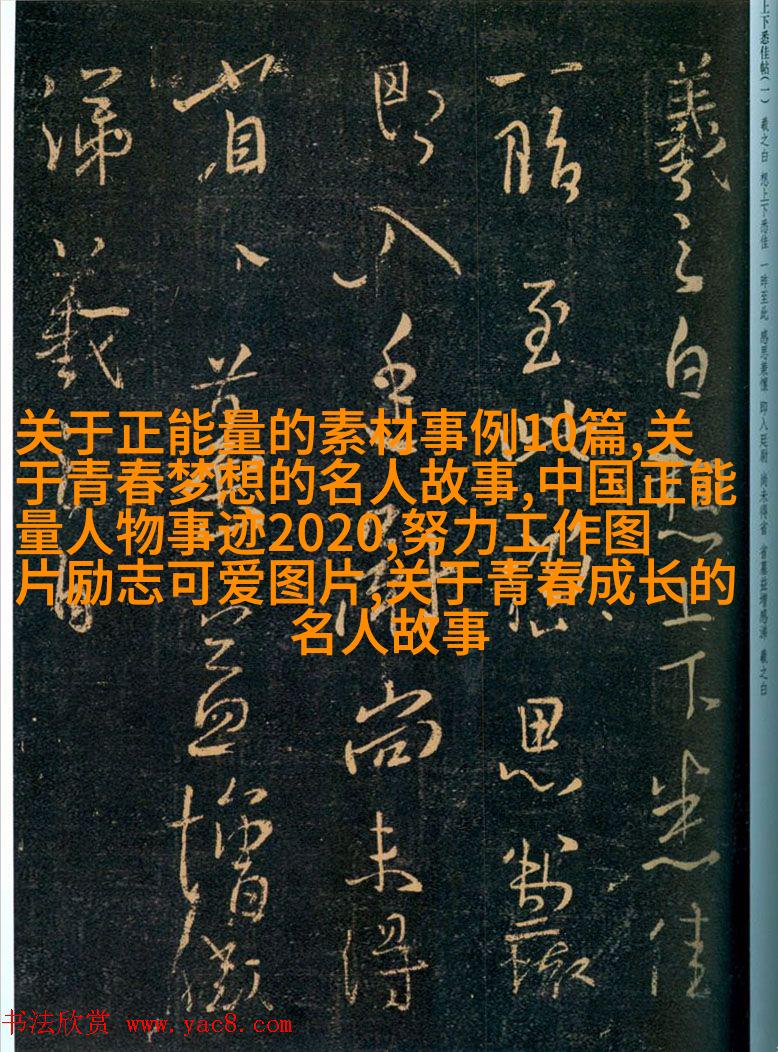 上下悉佳帖(一) 羲之白 想上下悉佳 一昨至此 感思兼懷 即入廷尉 尚未得省 省墓益增感涕 羲之白
羲之白想上下悉佳
至此思
即入尚未得
省墓益增感
涕羲之白
关于正能量的素材事例10篇,关
于青春梦想的名人故事,中国正能
量人物事迹2020,努力工作图
片励志可爱图片,关于青春成长的
名人故事
书法欣赏 www.yac8.com